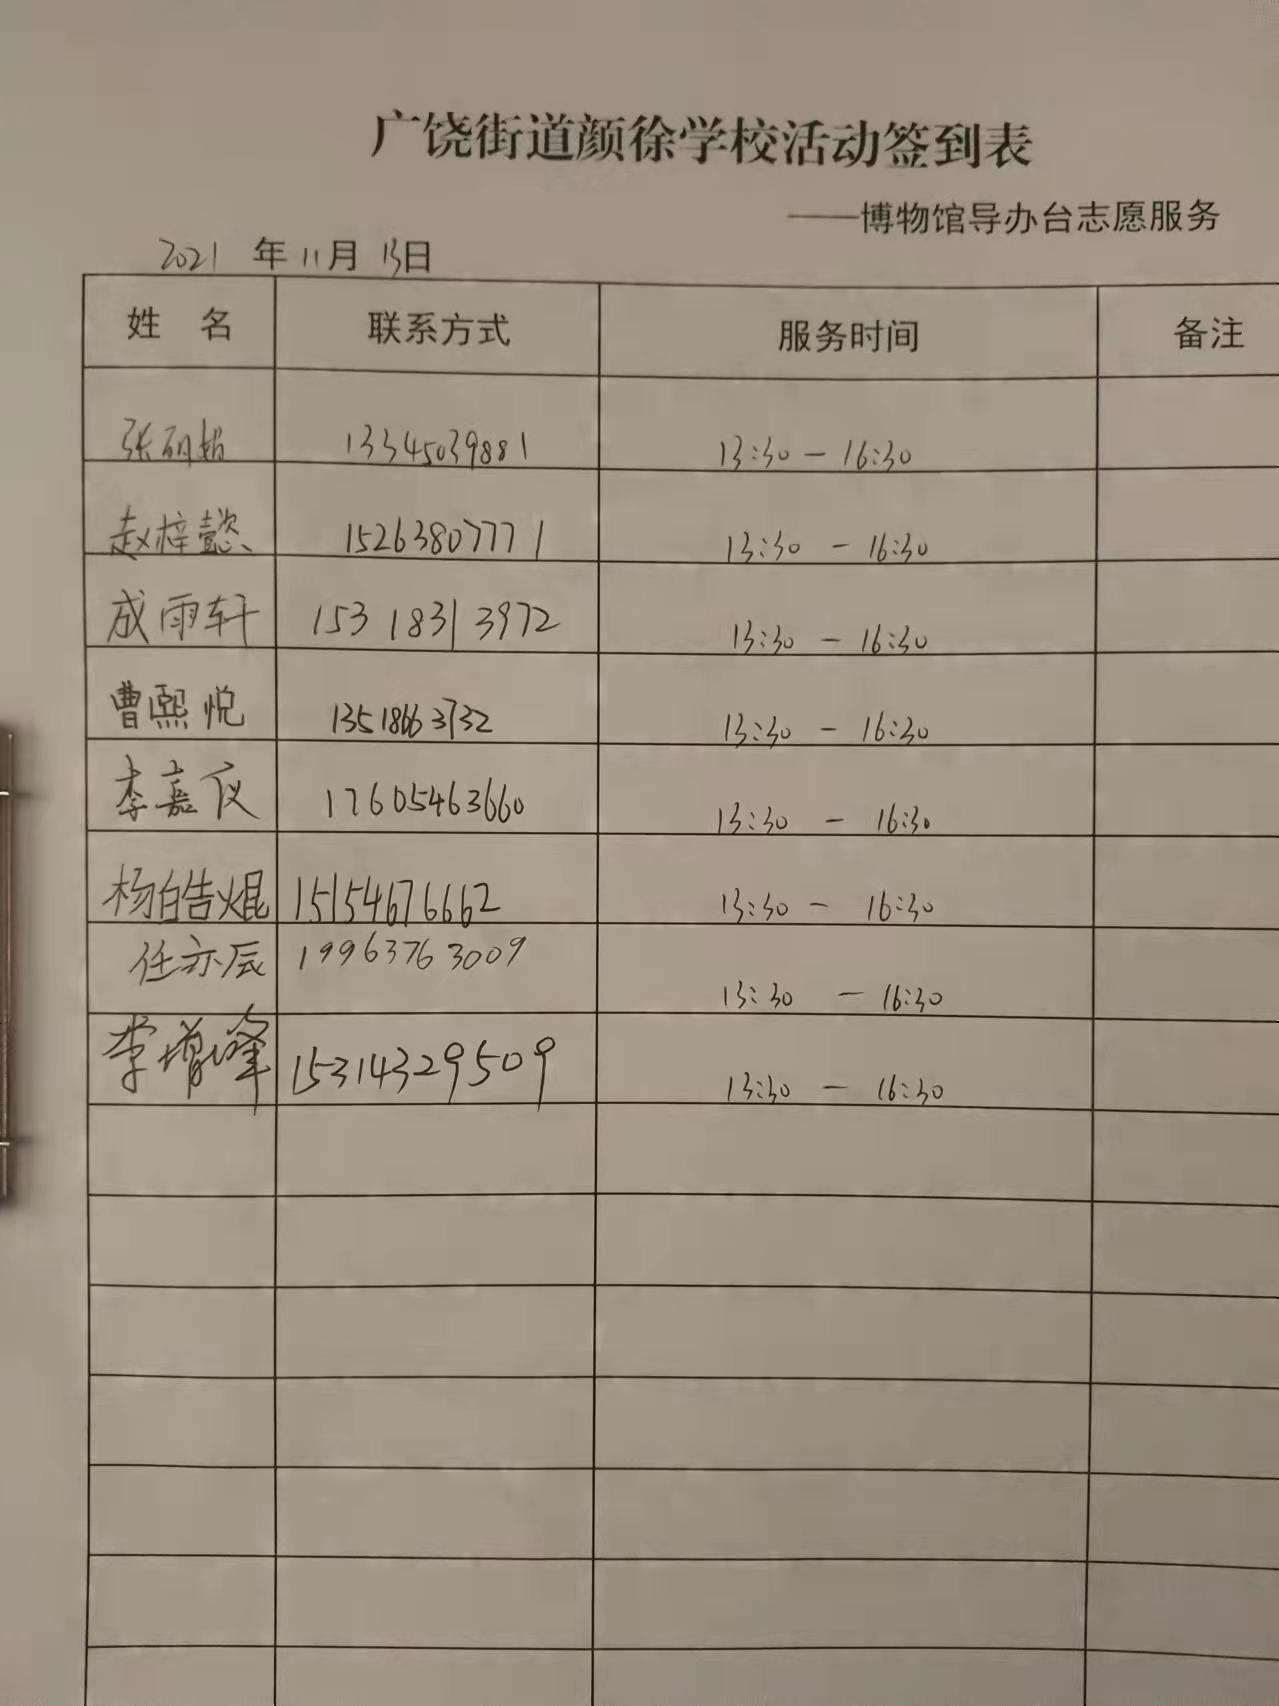 广饶街道颜徐学校活动签到表
——博物馆导办台志愿服务
2021 年 11 月 13 日
姓 名 联系方式 服务时间 备注
张 娟 13345039881 13:30 — 16:30
赵梓懿 15263807771 13:30 — 16:30
成雨轩 15318313972 13:30 — 16:30
曹熙悦 13518663732 13:30 — 16:30
李嘉仪 17605463660 13:30 — 16:30
杨皓焜 15154676662 13:30 — 16:30
任亦辰 19963763009 13:30 — 16:30
李增峰 15314329509 13:30 — 16:30